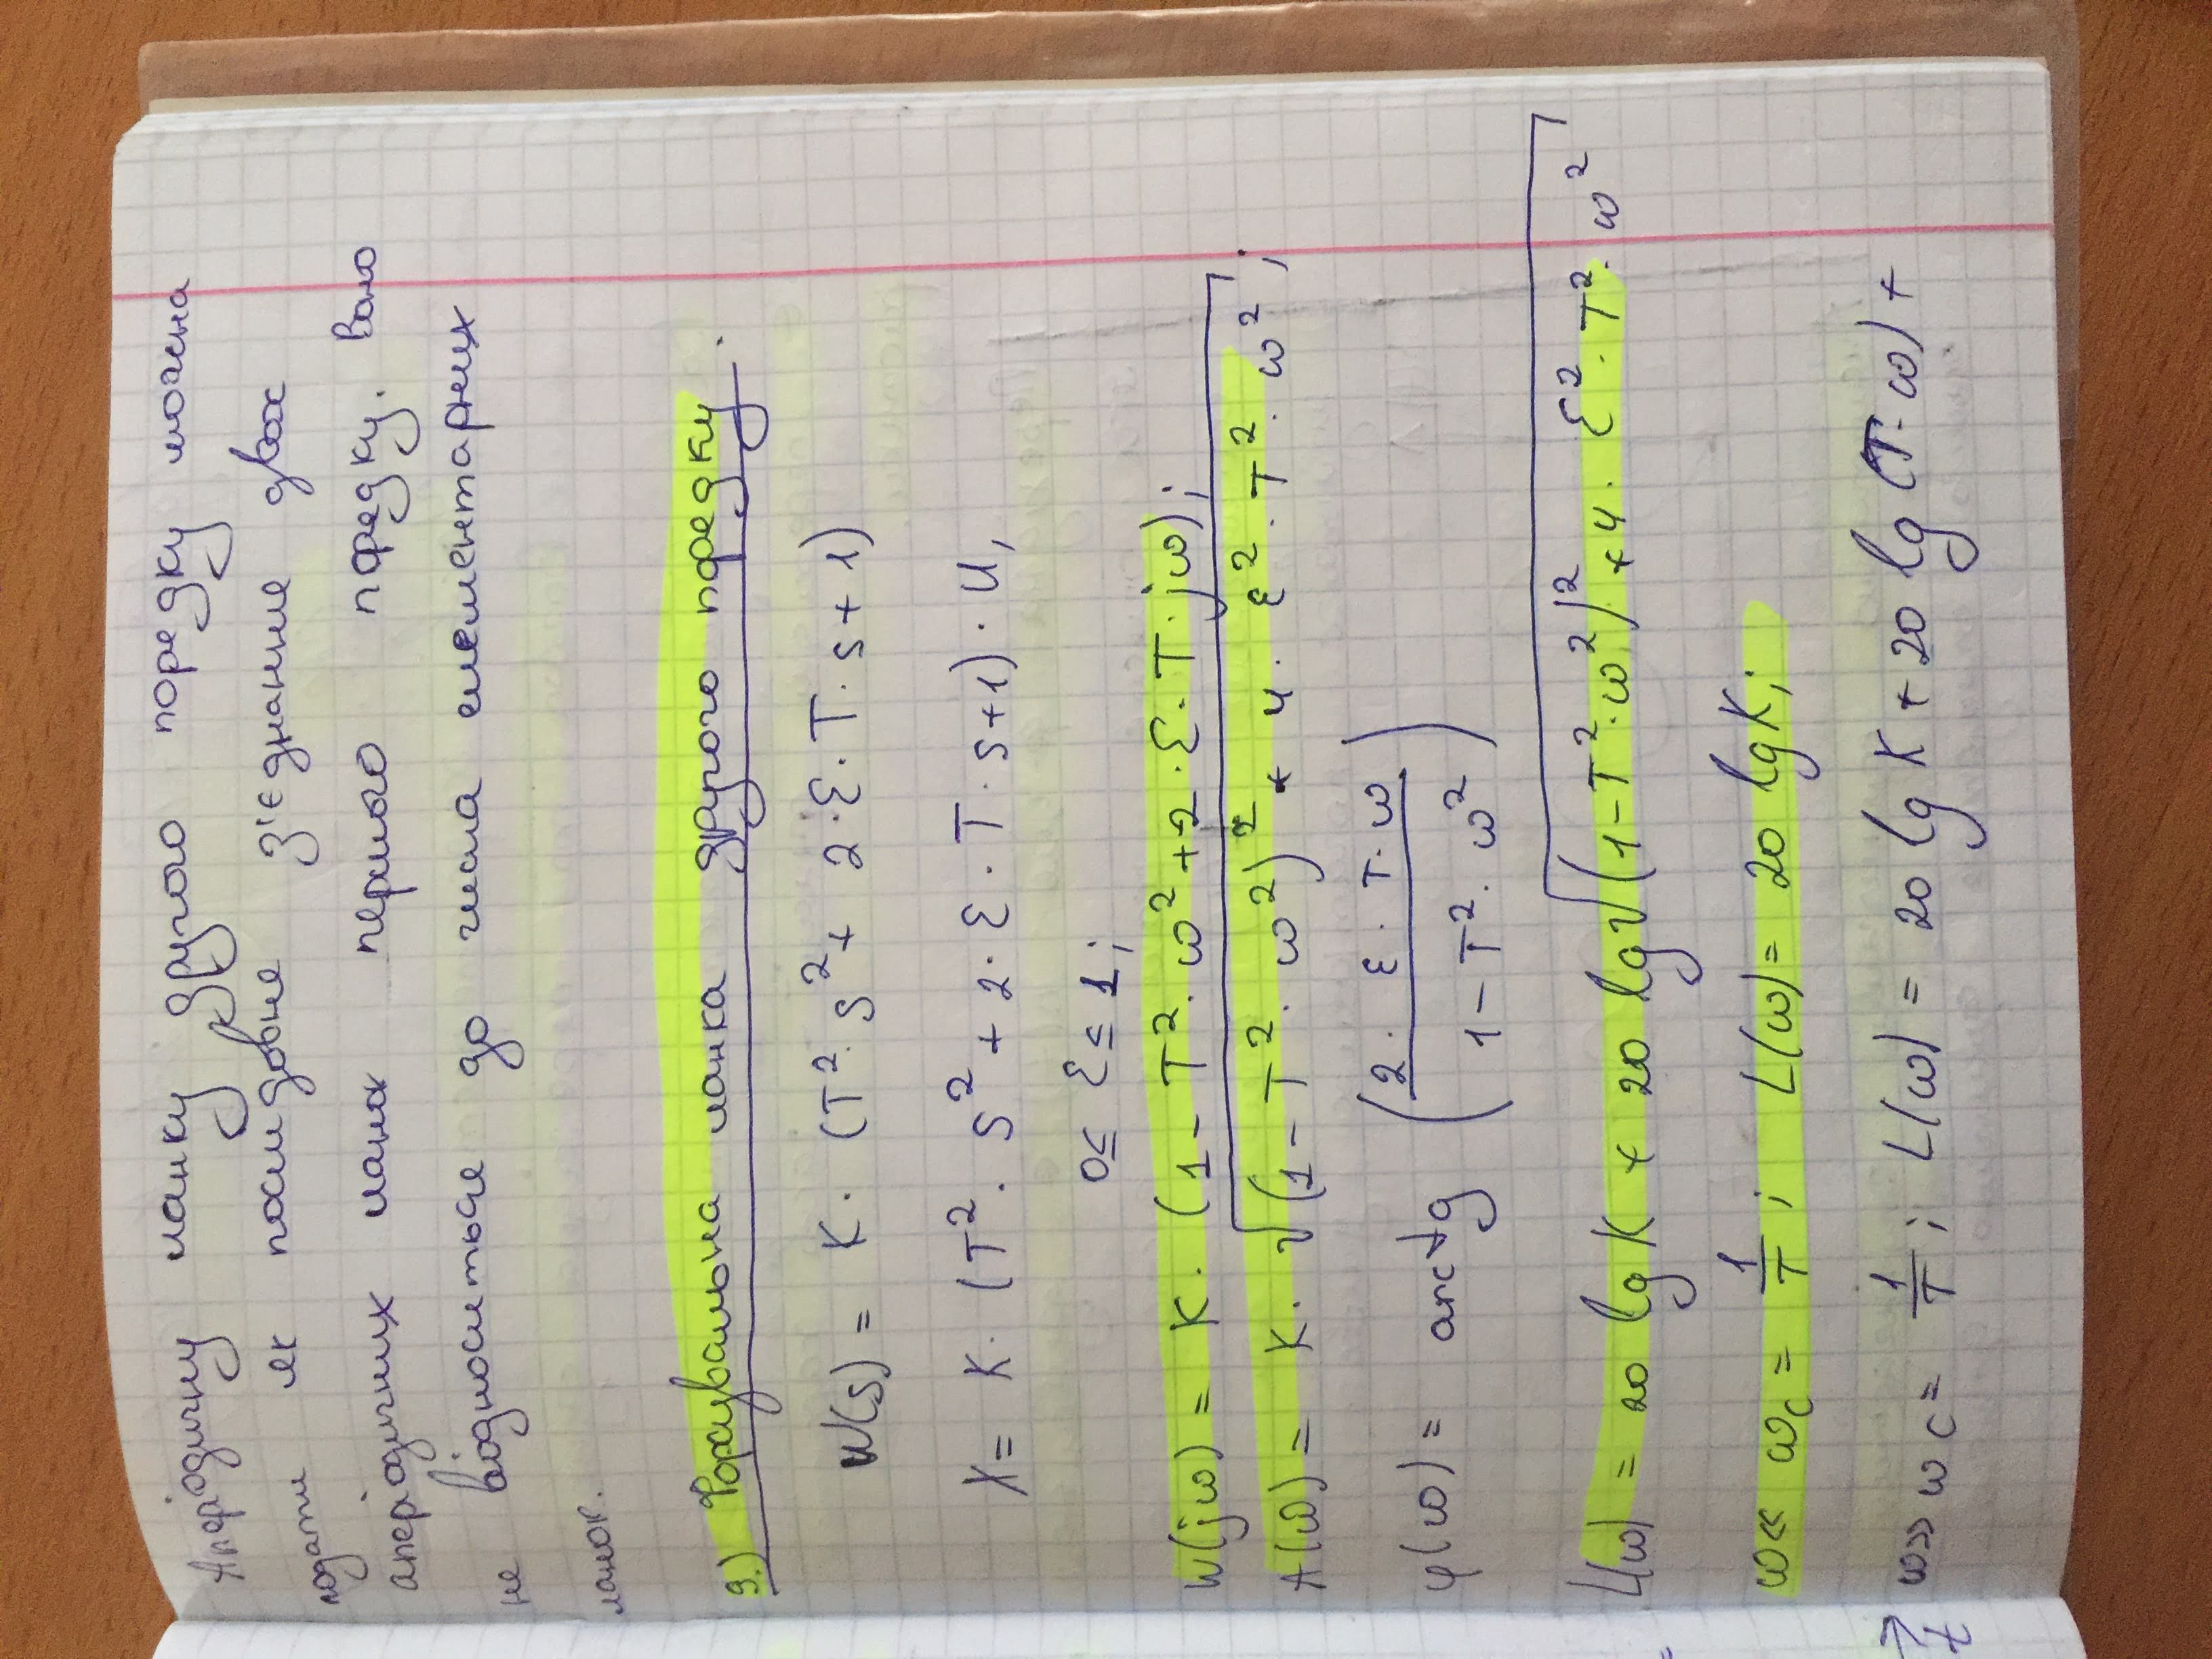 Аперіодичну ланку другого поредку можна
подати як послідовне з'єднанне двох
аперіодичних ланок першого поредку. Воно
не відноситьсе до числа елементарних
ланок.
9.) Форсувальна ланка другого поредку.
W(s) = K · (T² · s² + 2 · ε · T · s + 1)
X = K · (T² · s² + 2 · ε · T · s + 1) · U,
0 ≤ ε ≤ 1;
W(jω) = K · (1 - T² · ω² + 2 · ε · T · jω);
A(ω) = K · √((1 - T² · ω²)² + 4 · ε² · T² · ω²);
φ(ω) = arctg ((2 · ε · T · ω) / (1 - T² · ω²))
L(ω) = 20 lg K + 20 lg √((1 - T² · ω²)² + 4 · ε² · T² · ω²)
ω << ω_c = 1/T; L(ω) = 20 lg K;
ω >> ω_c = 1/T; L(ω) = 20 lg K + 20 lg (T · ω) +
t